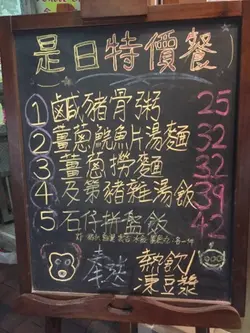 是日特價餐
1 鹹豬骨粥 25
2 薑蔥鯇魚片湯麵 32
3 薑蔥撈麵 32
4 及第豬雜湯飯 39
5 石仔拼盤飯 42
熱飲/
凍豆漿